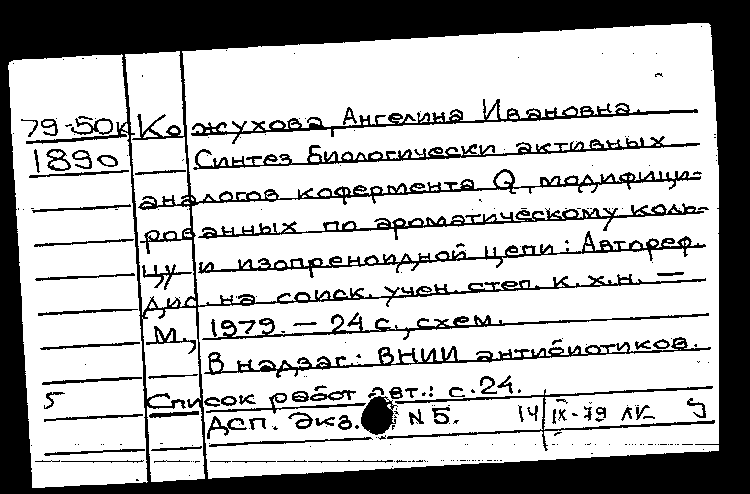 79-50к Кожухова, Ангелина Ивановна.
1890 Синтез биологически активных
аналогов кофермента Q, модифици-
рованных по ароматическому коль-
цу и изопреноидной цепи: Автореф.
дис. на соиск. учен. степ. к. х.н. —
М., 1979. — 24 с., схем.
В надзаг.: ВНИИ антибиотиков.
5 Список работ авт.: с. 24.
ДСП. Экз. N 5. 14/IX-79